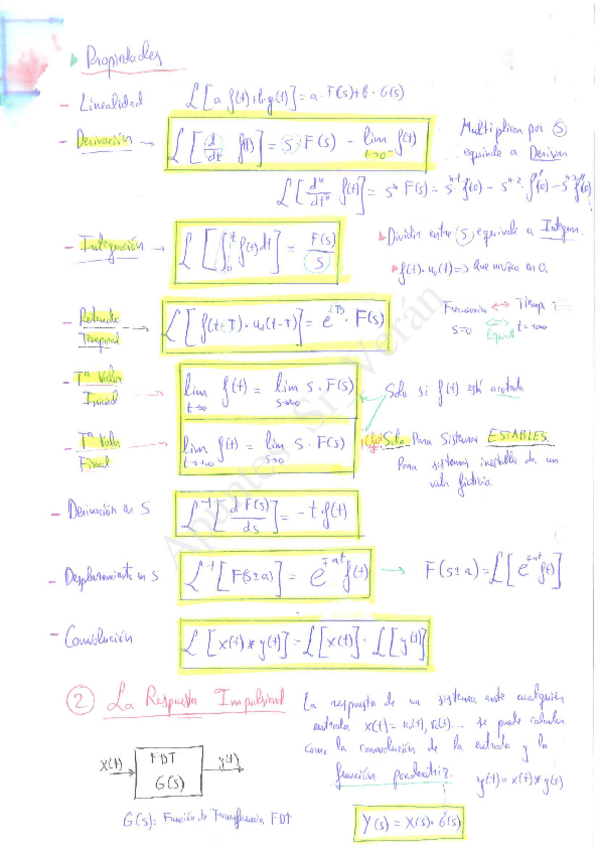 Propiedades
- Linealidad L[a·f(t)+b·g(t)] = a·F(s)+b·G(s)
- Derivación → L[d/dt f(t)] = s·F(s) - lim t→0⁻ f(t)
Multiplicar por s
equivale a Derivar
L[dⁿ/dtⁿ f(t)] = sⁿ F(s) - sⁿ⁻¹ f(0) - sⁿ⁻²·f'(0) - sⁿ⁻³ f''(0)
- Integración → L[∫₀ᵗ f(t)dt] = F(s)/s
Dividir entre s equivale a Integrar.
f(t)·u₀(t) => Que nazca en 0.
- Retardo Temporal → L[f(t-T)·u₀(t-T)] = e^-Ts · F(s)
Frecuencia ↔ Tiempo
s=0 t=∞
- Tª Valor Inicial → lim t→0 f(t) = lim s→∞ s·F(s)
Solo si f(t) está acotada
- Tª Valor Final → lim t→∞ f(t) = lim s→0 s·F(s)
Solo Para Sistemas ESTABLES
Para sistemas inestables da un
valor ficticio.
- Derivación en S L⁻¹[dF(s)/ds] = -t·f(t)
- Desplazamiento en s L⁻¹[F(s±a)] = e^∓at f(t) → F(s±a) = L[e^∓at f(t)]
- Convolución L[x(t)*y(t)] = L[x(t)]·L[y(t)]
② La Respuesta Impulsional
La respuesta de un sistema ante cualquier
entrada x(t) = u₀(t), r₀(t)... se puede calcular
como la convolución de la entrada y la
función ponderatriz. y(t) = x(t)*g(t)
x(t) FDT y(t)
G(s)
G(s): Función de Transferencia FDT
Y(s) = X(s)·G(s)
Apuntes Sr. Verán